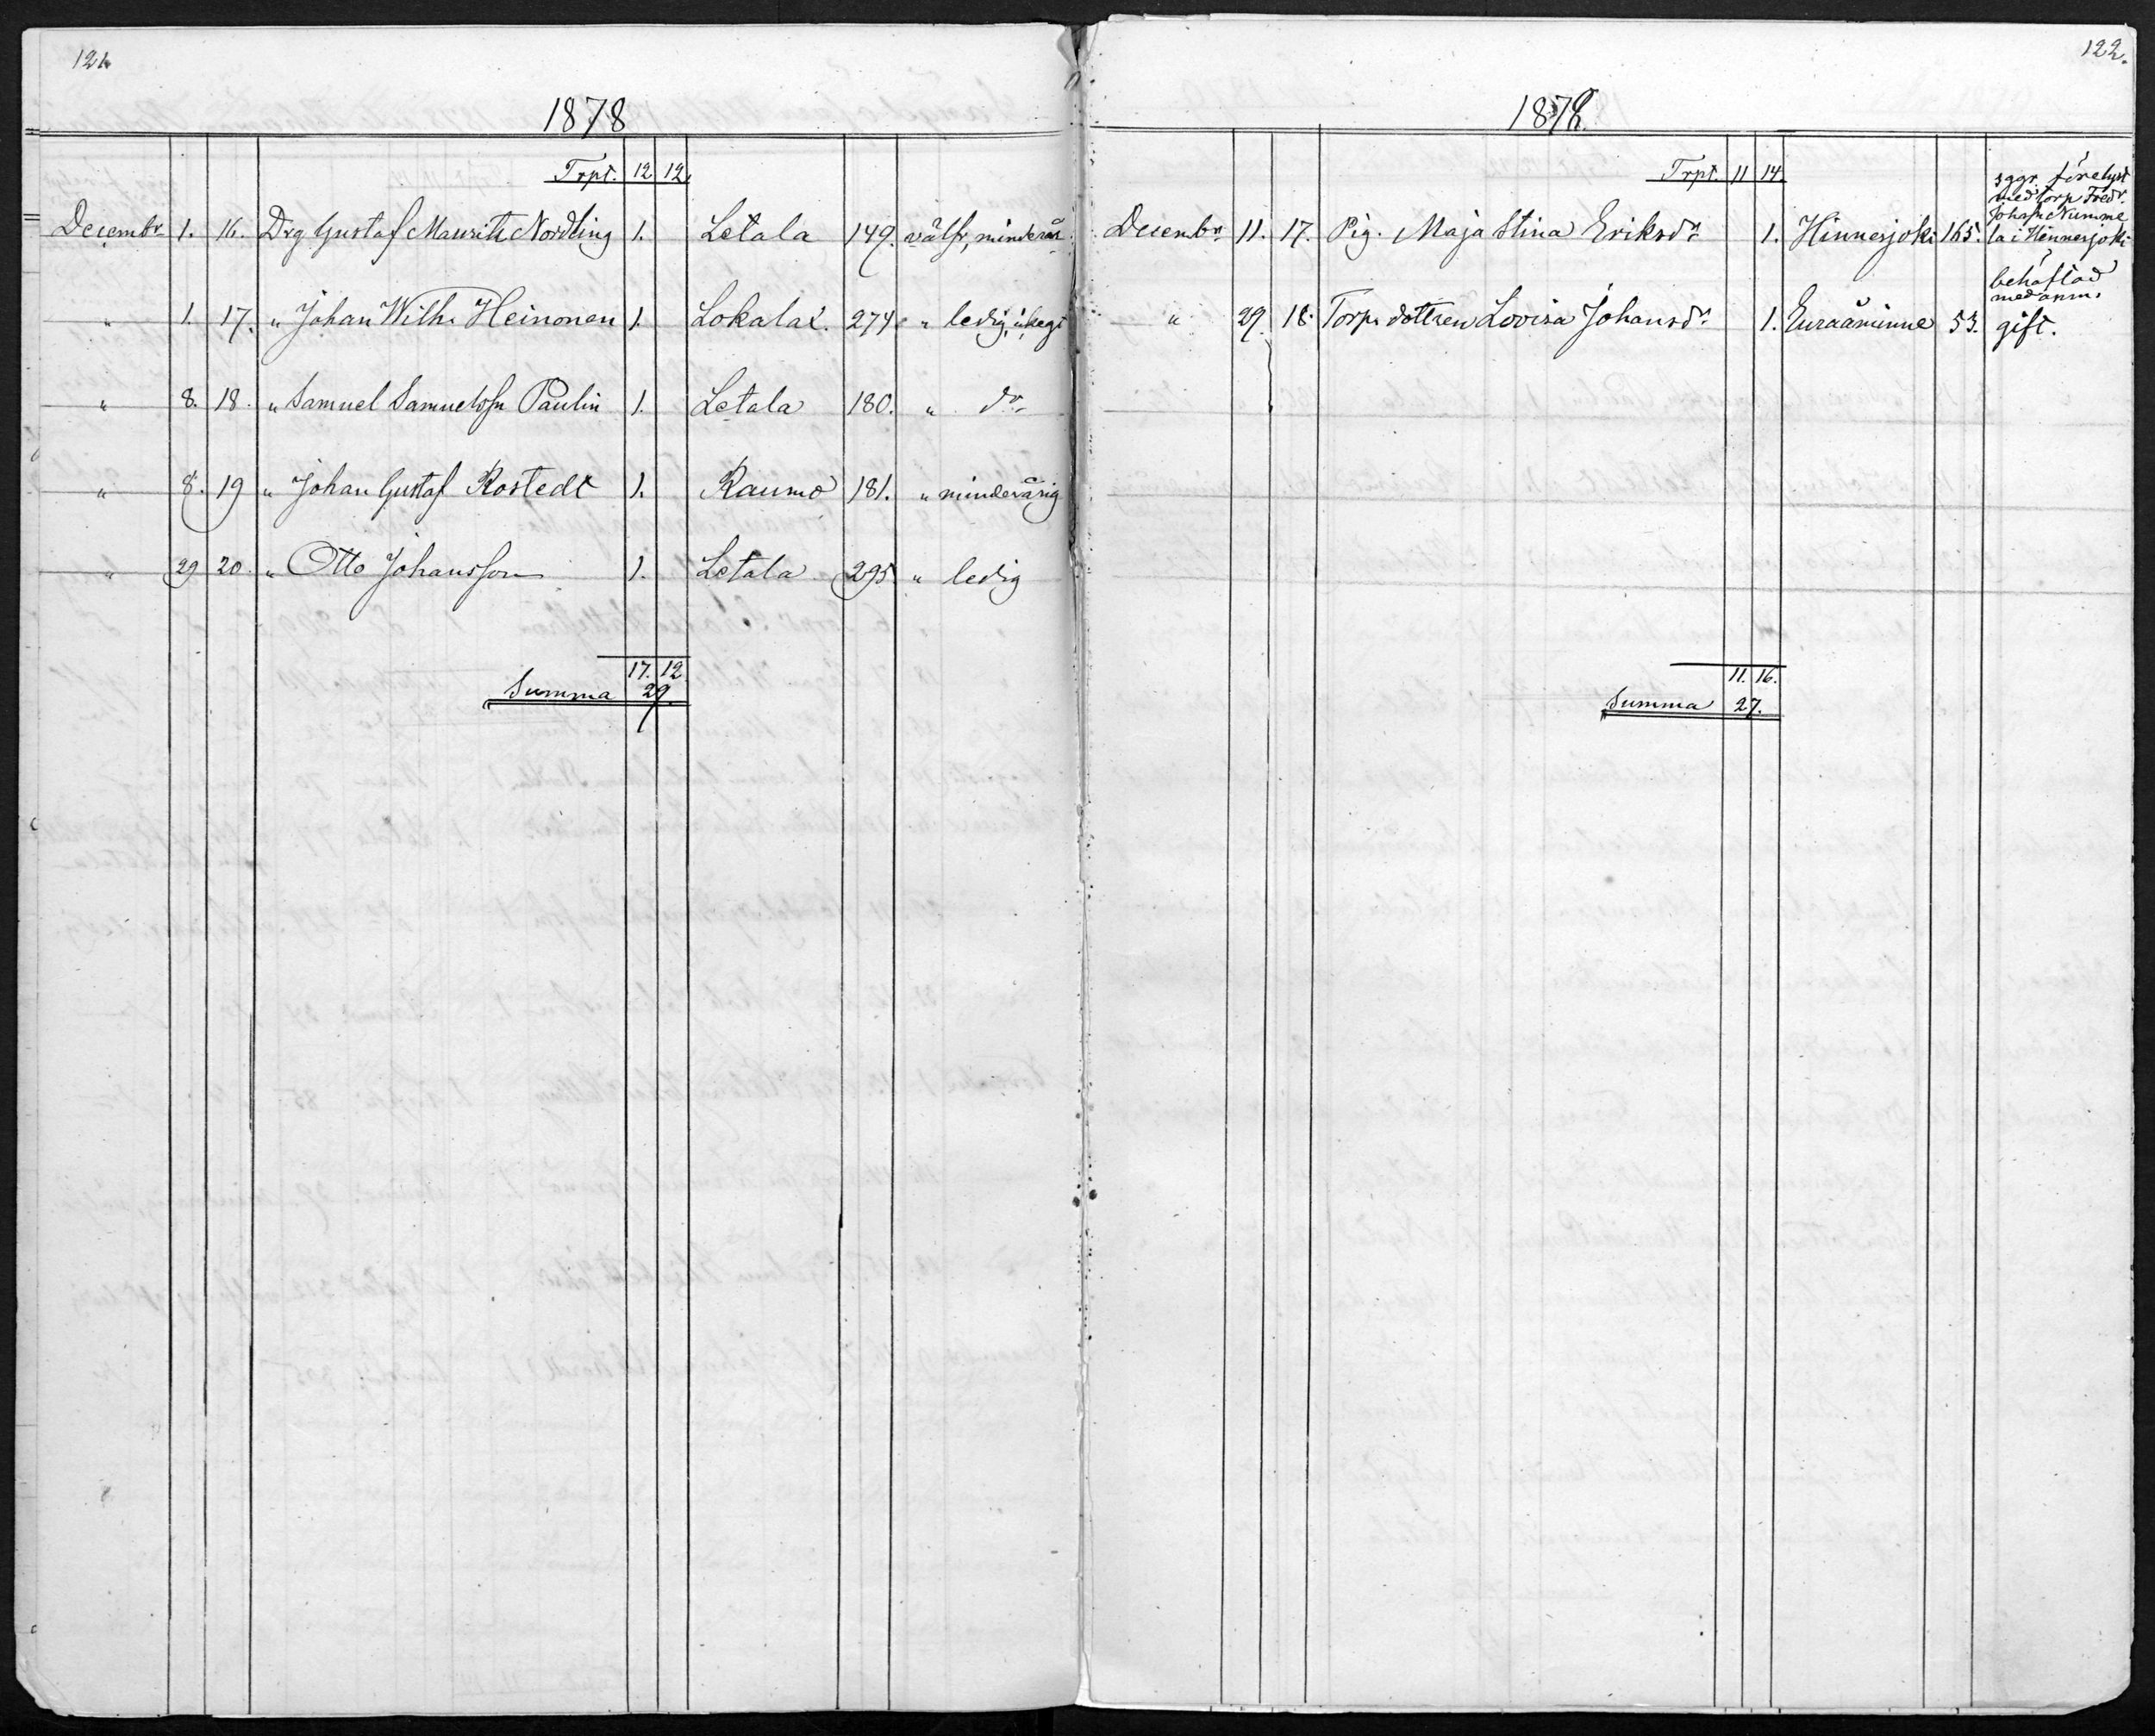 121
1878
Trpt. 12 12.
Decembr. 1. 16. Drg Gustaf Mauritz Nordling 1. Letala 149. välfr, minderår
" 1. 17. " Johan Wilh. Heinonen 1. Lokalax. 274. " ledig,
" 8. 18. " Samuel Samuelsson Paulin 1. Letala 180. " do
" 8. 19 " Johan Gustaf Rostedt 1. Raumo 181. " minderårig
" 29 20. " Otto Johansson 1. Letala 295 " ledig
17. 12.
Summa 29.
122.
1878
Trpt. 11 14.
3 ggr. förelyst
med torp. Fredr.
Decembr. 11. 17. Pig. Maja Stina Eriksdr. 1. Hinnerjoki 165. Johan Numme
la i Hinnerjoki
behäftad
med anm.
" 29 18. Torp. dottren Lovisa Johansdr. 1. Euraåminne 53. gift.
11. 16.
Summa 27.